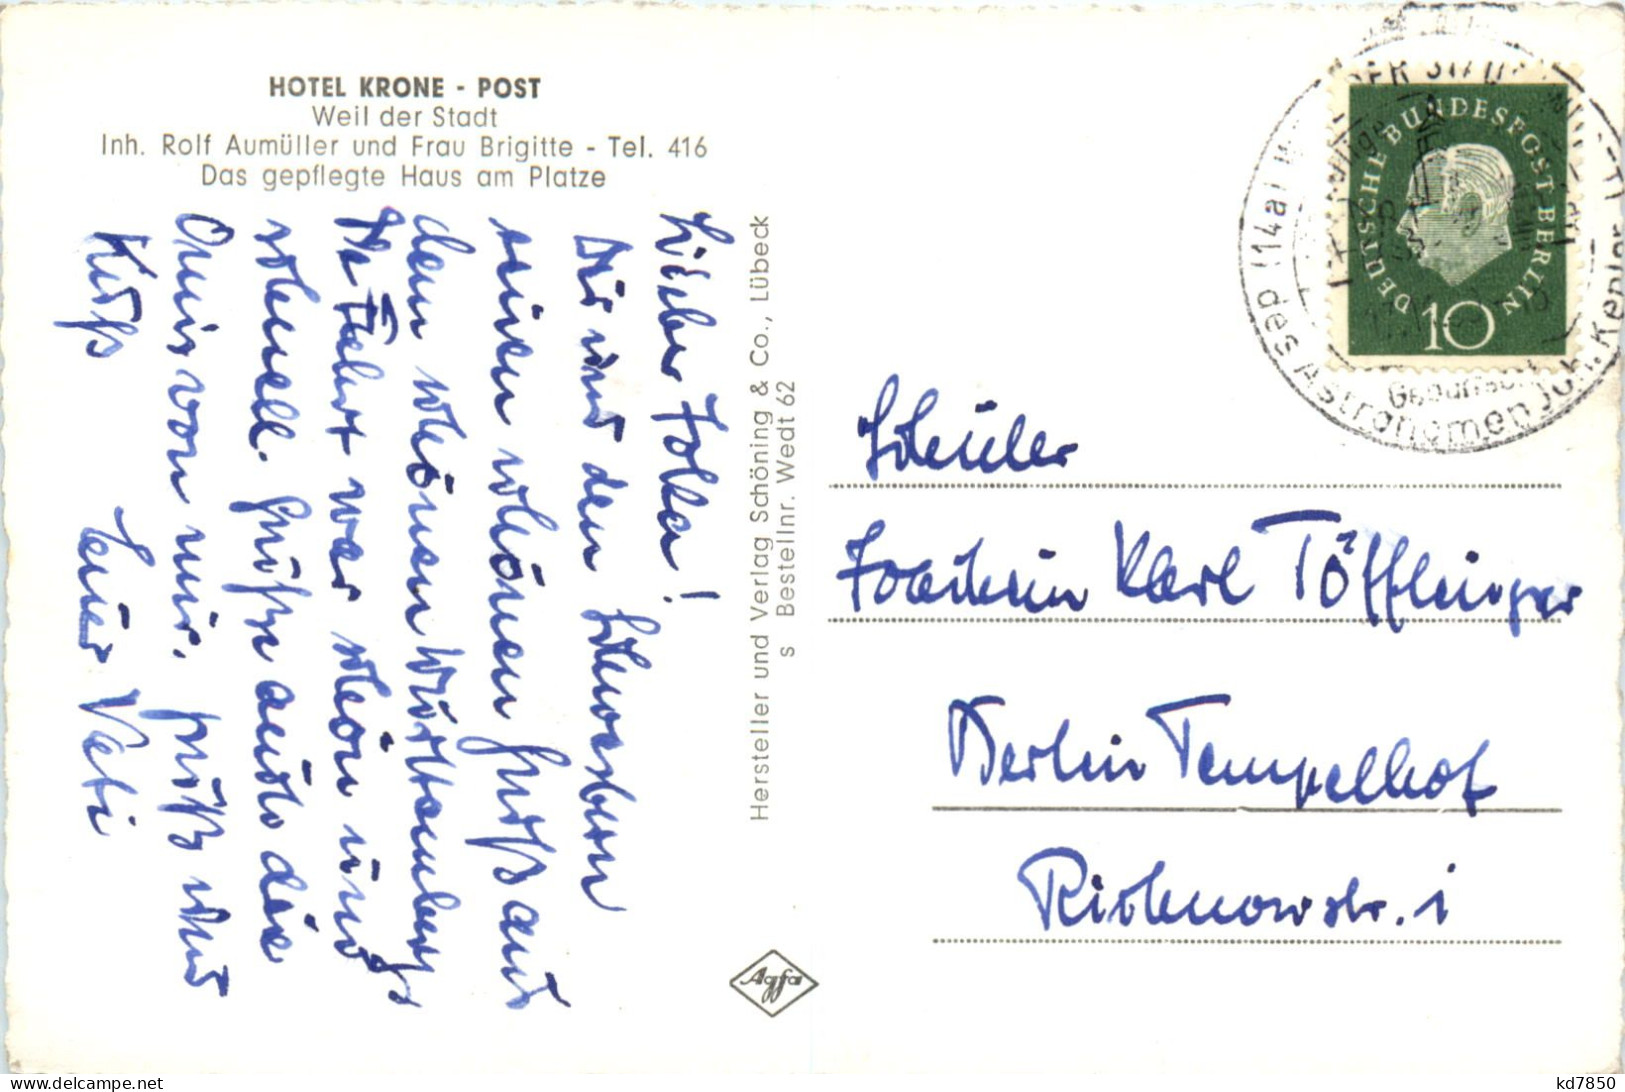 HOTEL KRONE - POST
Weil der Stadt
Inh. Rolf Aumüller und Frau Brigitte - Tel. 416
Das gepflegte Haus am Platze
Lieber Jolka!
Dir und den
einen schönen Gruß aus
dem schönen Württemberg
Die Fahrt war schön und
schnell. Grüße auch die
Omis von mir. Gruß und
Kuß Euer Vati
Hersteller und Verlag Schöning & Co., Lübeck
S Bestellnr. Wedt 62
Agfa
DEUTSCHE BUNDESPOST BERLIN
10
des Astronomen Joh. Kepler
Schüler
Joachim Karl Töfflinger
Berlin Tempelhof
kd7850